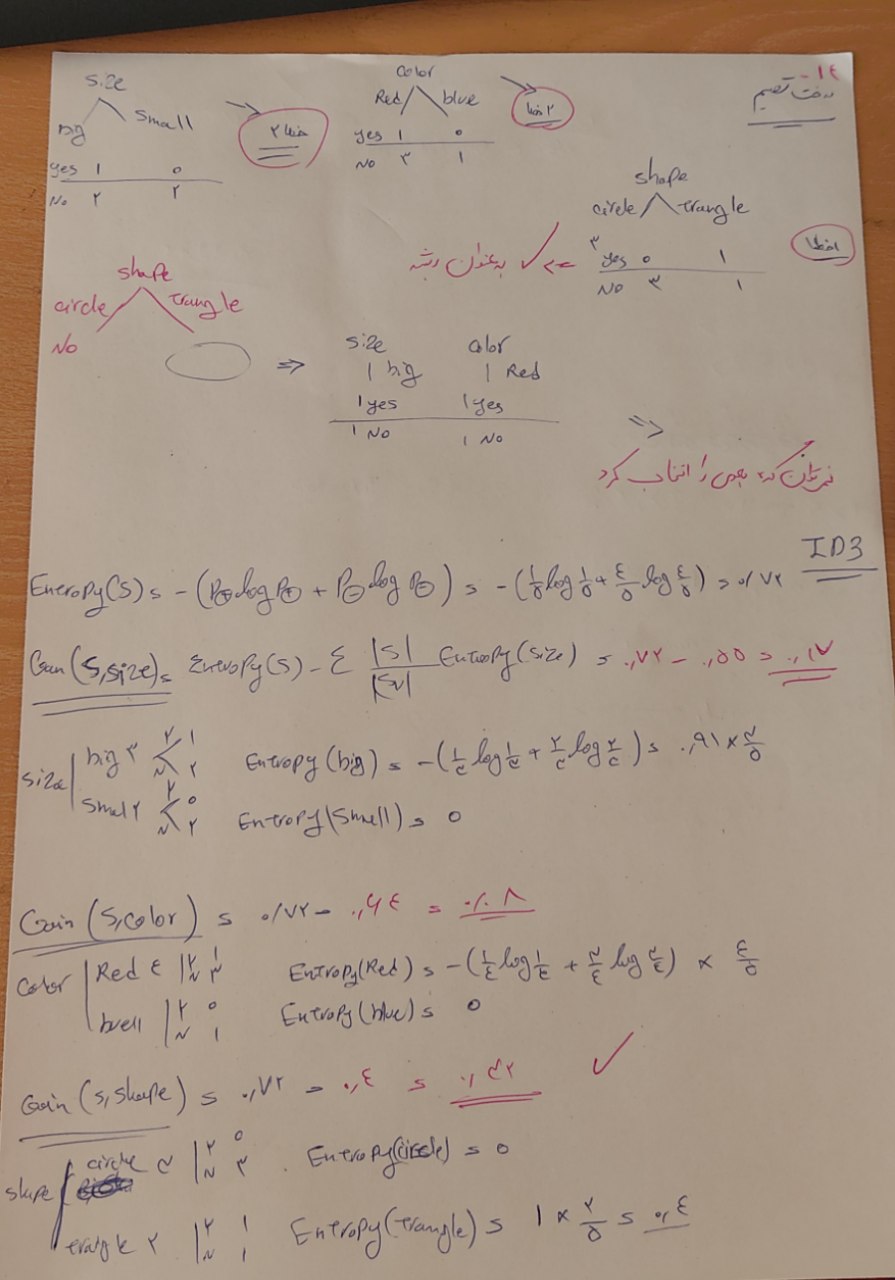 ۱٤-
درخت تصمیم
size
big small
yes ۱ ۰
No ۲ ۲
⇒ خطا ۲
color
Red blue
yes ۱ ۰
No ۳ ۱
⇒ ۲ خطا
shape
circle trangle
yes ۰ ۱
No ۳ ۱
۱ خطا
⇐ ✓ به عنوان ریشه
shape
circle trangle
No
⇒
size color
۱ big ۱ Red
۱ yes ۱ yes
۱ No ۱ No
⇒
نمی‌توان که را انتخاب کرد
ID3
Entropy(S) = -(P⊕ log P⊕ + P⊖ log P⊖) = -(۱/۵ log ۱/۵ + ٤/۵ log ٤/۵) = ۰/۷۲
Gain(S,size) = Entropy(S) - Σ |S|/|Sv| Entropy(size) = ۰,۷۲ - ۰,۵۵ = ۰,۱۷
size big ۳ Y ۱ N ۲ Entropy(big) = -(۱/۳ log ۱/۳ + ۲/۳ log ۲/۳) = ۰,۹۱ × ۳/۵
small ۲ Y ۰ N ۲ Entropy(small) = ۰
Gain(S,color) = ۰/۷۲ - ۰,۶٤ = ۰/۰۸
color Red ٤ Y ۱ N ۳ Entropy(Red) = -(۱/٤ log ۱/٤ + ۳/٤ log ۳/٤) × ٤/۵
buell Y ۰ N ۱ Entropy(blue) = ۰
Gain(s,shape) = ۰,۷۲ - ۰,٤ = ۰,۳۲ ✓
shape circle ۳ Y ۰ N ۳ Entropy(circle) = ۰
trangle ۲ Y ۱ N ۱ Entropy(trangle) = ۱ × ۲/۵ = ۰,٤